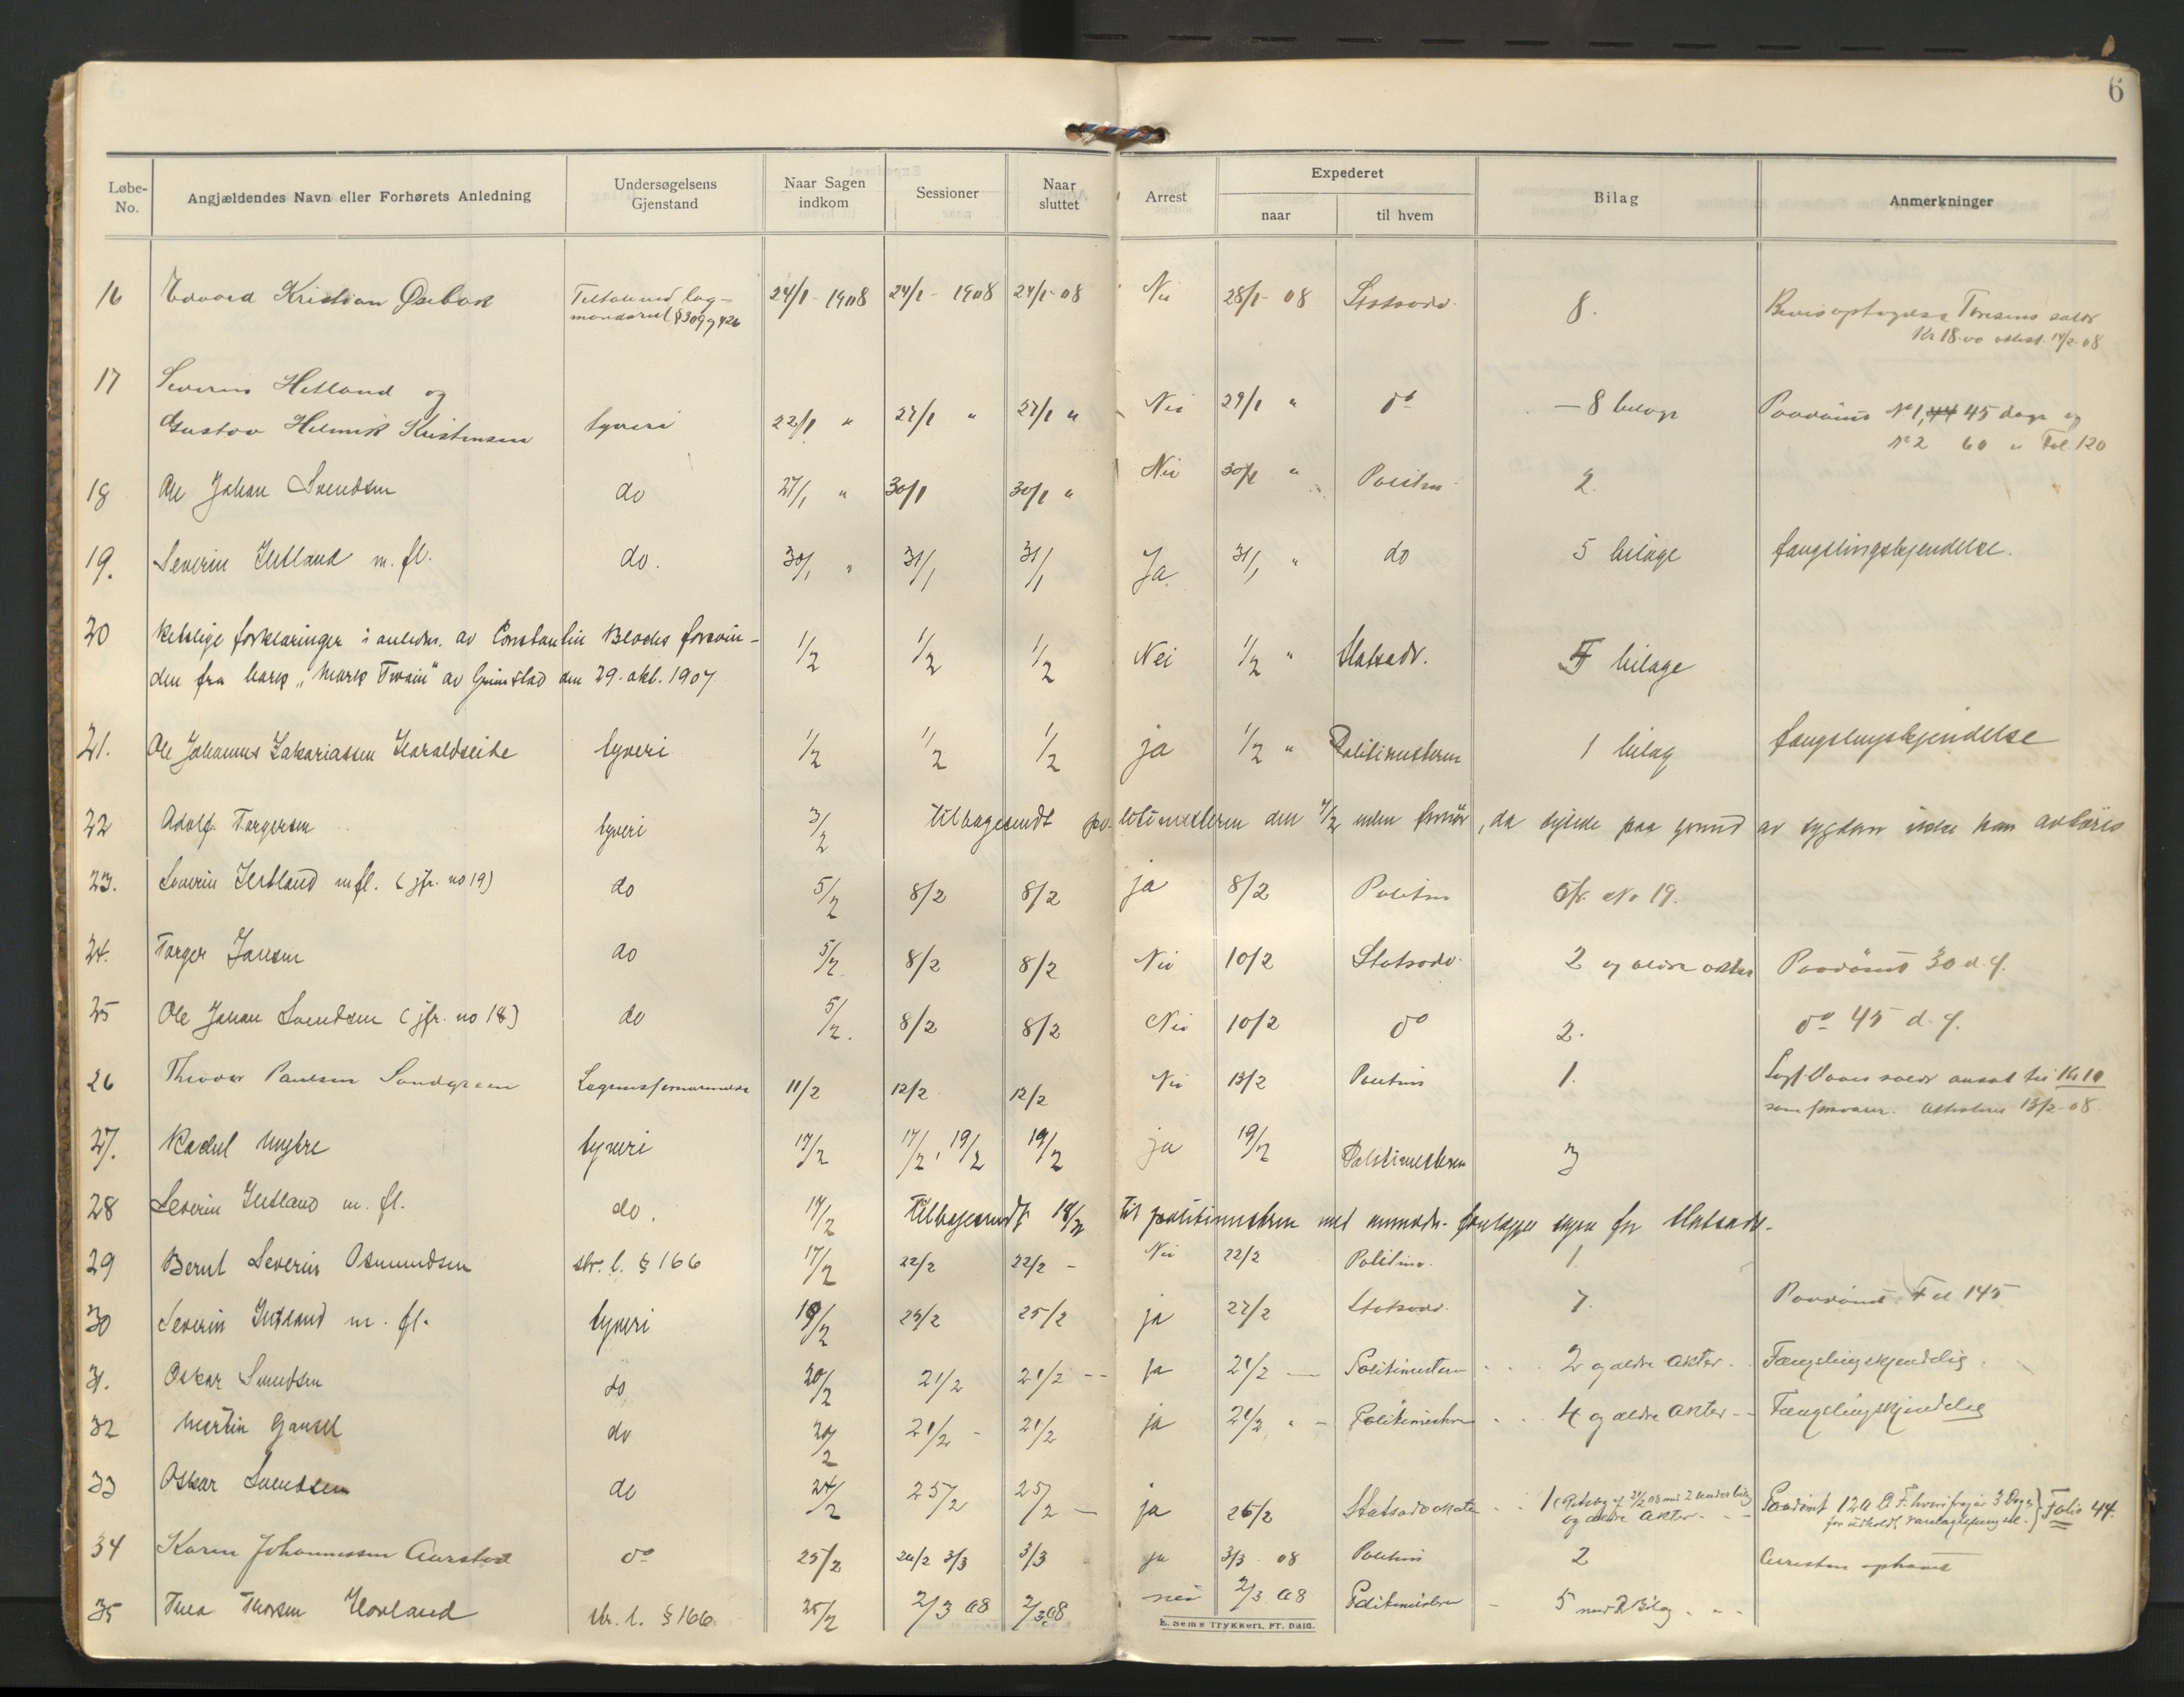 6
Løbe-No. Angjældendes Navn eller Forhørets Anledning Undersøgelsens Gjenstand Naar Sagen indkom Sessioner Naar sluttet Arrest Expederet naar til hvem Bilag Anmerkninger
16 Edvard Kristian 24/1 - 1908 24/1 - 1908 24/1-08 Nei 28/1-08 Statsadv. 8.
§ 309 Kr 18.00 14/2-08
17 Severin Hetland og
Gustav Helmik Kristensen tyveri 22/1 " 27/1 " 27/1 " Nei 29/1 " do — 8 bilage Paadömt No 1, 44 45 dage og
No 2 60 " Fol. 120
18 Ole Johan Svendsen do 27/1 " 30/1 30/1 " Nei 30/1 " Politm 2.
19. Severin Hetland m. fl. do. 30/1 " 31/1 31/1 Ja 31/1 " do 5 bilage fængslingskjendelse.
20 Retslige forklaringer i anledn. av Constantin forsvin-
den fra bark "Mark Twain" av Grimstad den 29. okt. 1907 1/2 1/2 1/2 Nei 1/2 " Statsadv. bilage
21. Ole Johannes Zakariassen Haraldseide tyveri 1/2 1/2 1/2 ja 1/2 " Politimesteren 1 bilag fængslingskjendelse
22 Adolf Torgersen tyveri 3/2 tilbagesendt politimesteren den 7/2 uten forhör, da sigtede paa grund av sygdom ikke kan avhöres
23. Severin Hetland m fl. (jfr. no 19) do 5/2 8/2 8/2 ja 8/2 Politm Cfr. No 19.
24. Torger Jansen do 5/2. 8/2 8/2 Nei 10/2 Statsadv. 2 og ældre akter Paadömt 30 d. f.
25 Ole Johan Svendsen (jfr. no 18) do 5/2. 8/2 8/2 Nei 10/2 do 2. do 45 d. f.
26 Theodor Paulsen Sandgreen Legemsfornærmelse 11/2 12/2 12/2 Nei 13/2 Politm 1. Sagf. salær ansat til Kr 10
som forsvarer. 13/2-08.
27. Myhre tyveri 17/2 17/2, 19/2 19/2 ja 19/2 Politimesteren 3
28 Severin Hetland m. fl. do. 17/2 Tilbagesendt 18/2 til politimesteren med anmodn. forelægge sagen for Statsadv.
29 Bernt Severin Osmundsen str. l. § 166 17/2 22/2 22/2 - Nei 22/2 Politm. 1
30 Severin Hetland m. fl. tyveri 19/2 25/2 25/2 ja 27/2 Statsadv. 7. Paadömt Fol 145
31. Oskar Svendsen do 20/2 21/2 21/2 -- ja 21/2 — Politimesteren 2 og ældre akter Fængslingskjendelse
32 Martin Gausel do 20/2 21/2 - 21/2 ja 21/2 " - Politimesteren 4 og ældre akter -- Fængslingskjendelse
33 Oskar Svendsen do 24/2 25/2 25/2 — ja 26/2 Statsadvokaten 1 (Retsbog af 21/2 08 med 2 underbilag Paadömt 120 D. F. hvori fragår 3 Dage
og ældre akter. for udholdt varetægtsfængsel. } Folio 44.
34 Karen Johannessen Aarstad do 25/2 26/2 3/3 3/3 ja 3/3 08 Politm 2 Arresten ophævet
35 Thea Thorsen Hovland str. l. § 166. 25/2 2/3 08 2/3 08 nei 2/3 08 Politimesteren - 5 med 2 Bilag
E. Sems Trykkeri, Fr. hald.